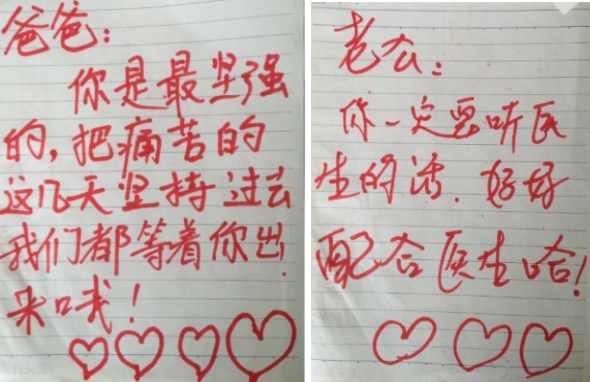 爸爸：
你是最坚强
的，把痛苦的
这几天坚持过去
我们都等着你出
来哦！
老公：
你一定要听医
生的话．好好
配合医生哈！